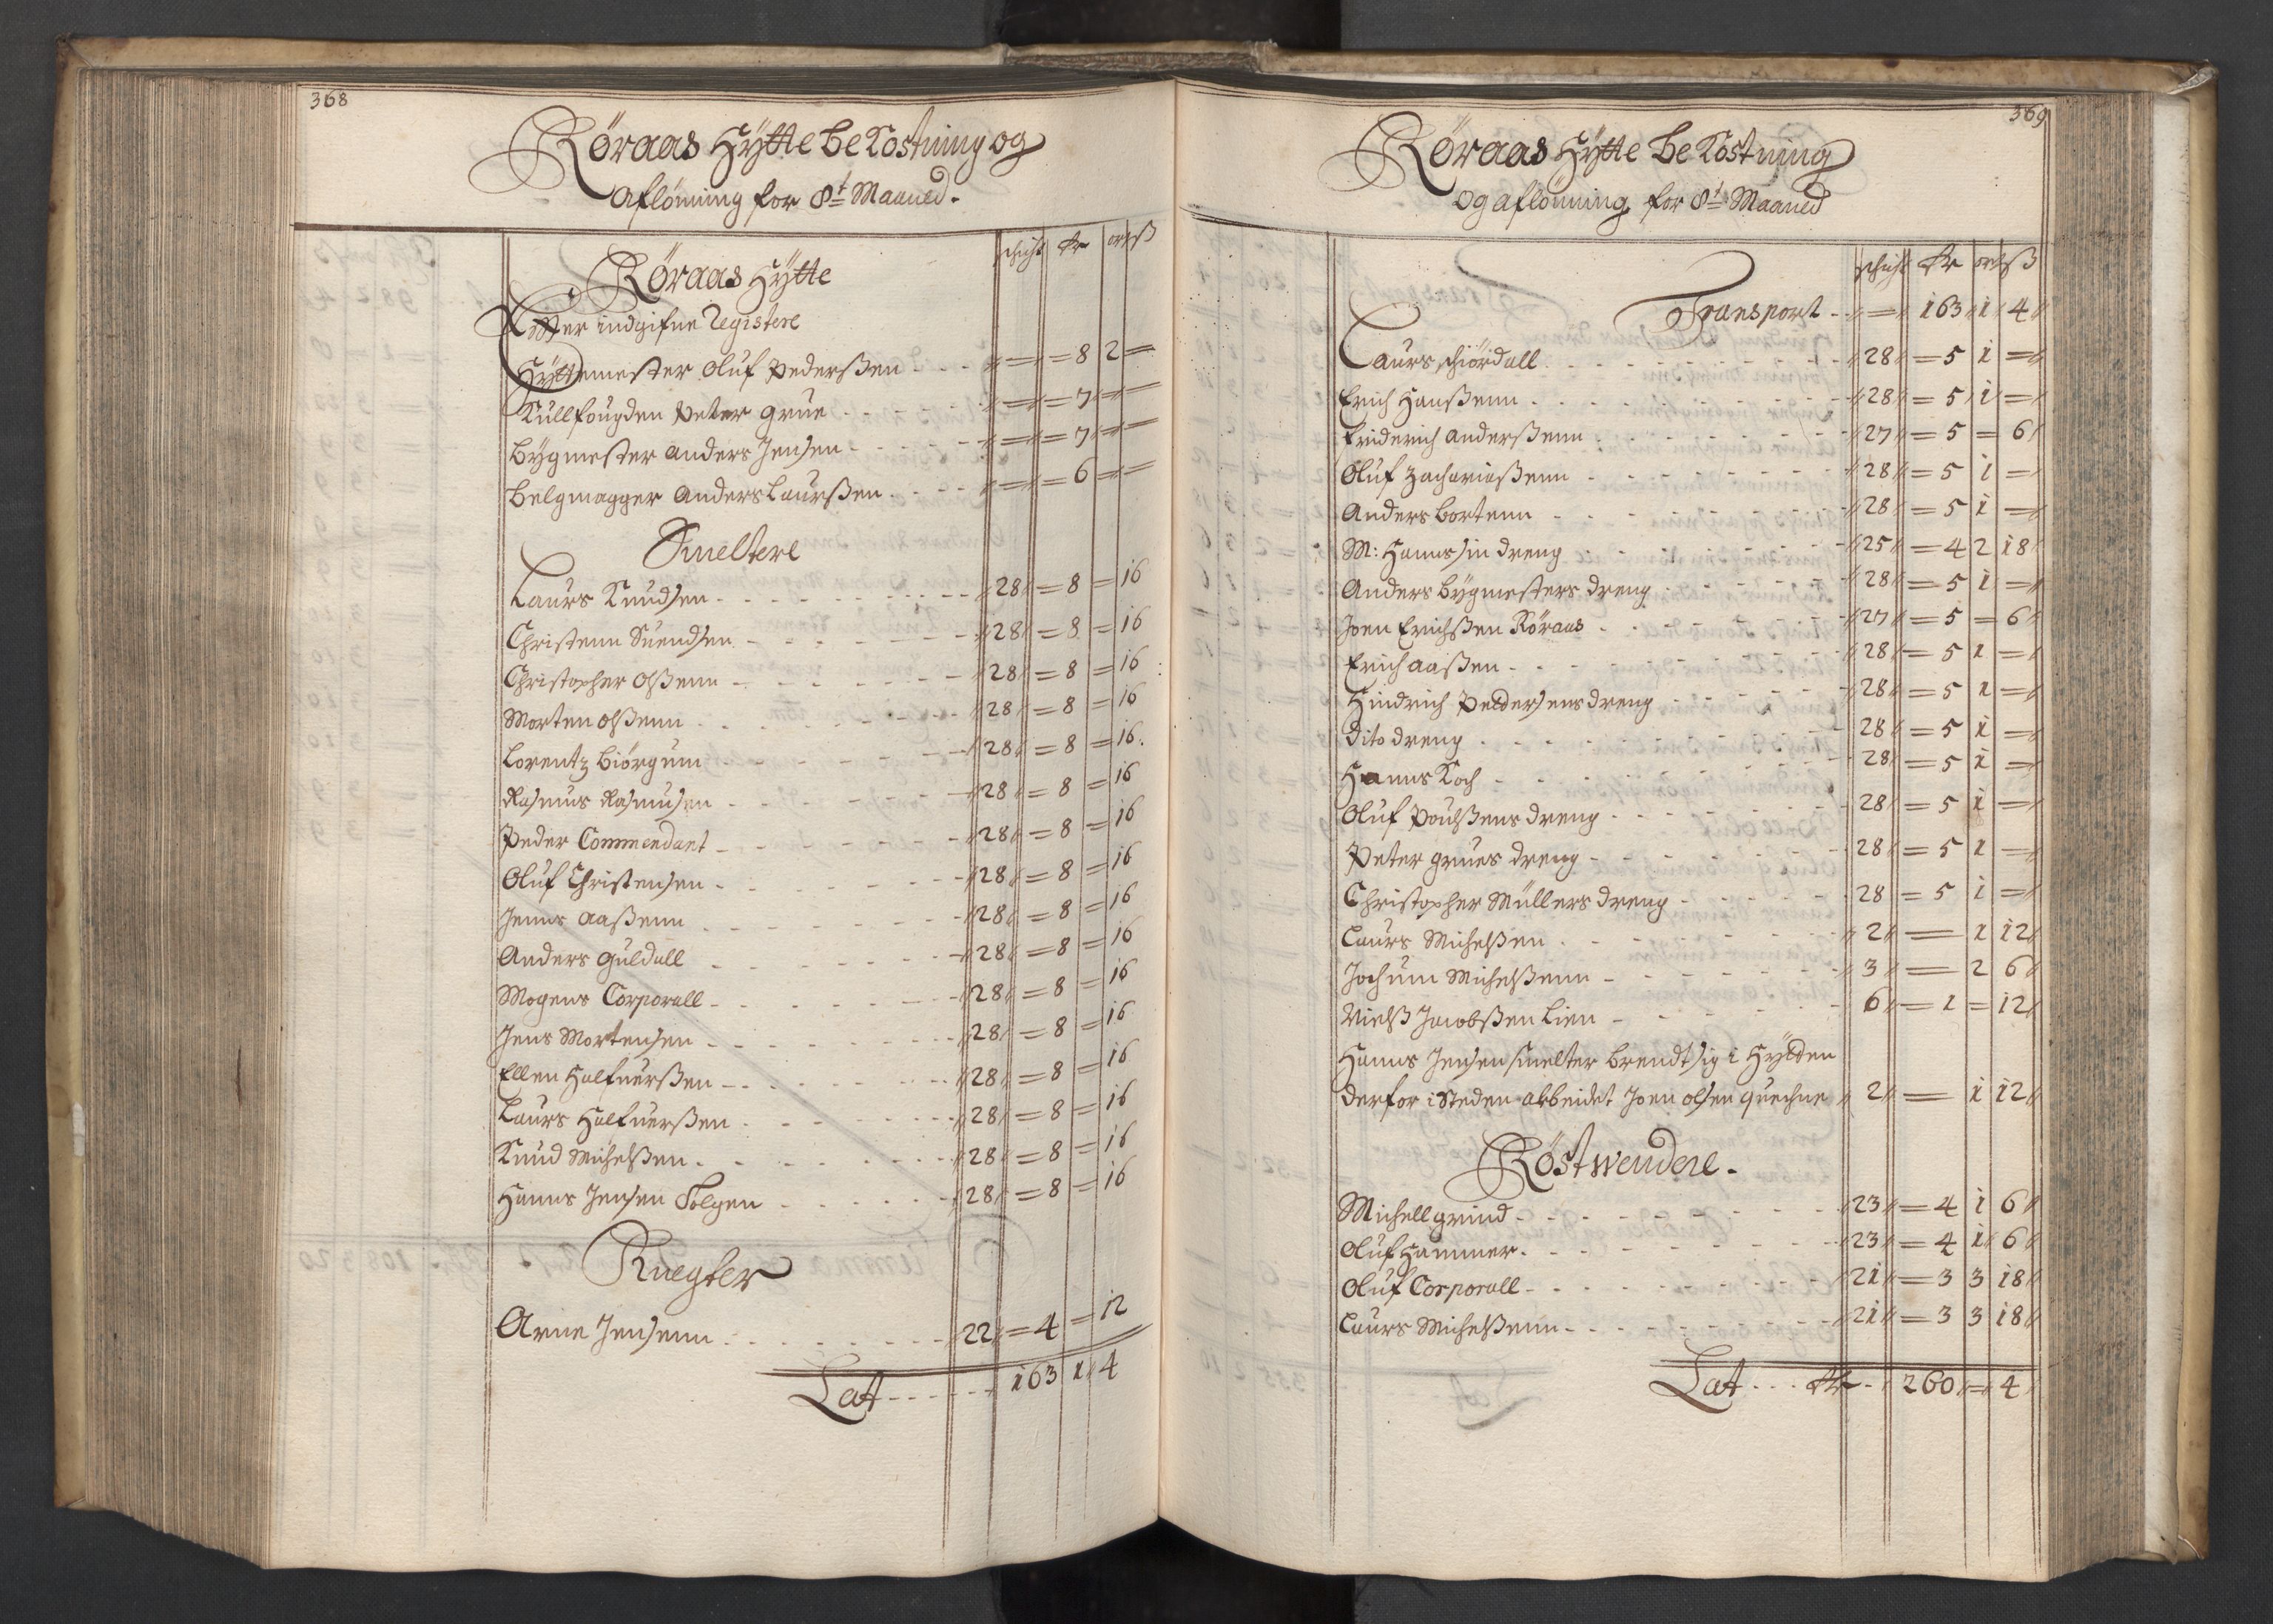 368
Röraas Hÿtte beKostning og
Aflönning for 8t Maaned.
schicht Rdr ort ß
Röraas Hÿtte
Efter indgifne Registere
Hÿttemester Oluf Pederßen - - - = = 8 2 =
Kullfougden Peter Grue - - - = = 7 = =
Bÿgmester Anders Jensen - - - = = 7 = =
Belgmagger Anders Laurßen - - - = = 6 = =
Smeltere
Laurs Knudsen - - - 28 = 8 = 16
Christenn Suendsen - - - 28 = 8 = 16
Christopher Olßenn - - - 28 = 8 = 16
Morten Olßenn - - - 28 = 8 = 16
Lorentz Biörgum - - - 28 = 8 = 16.
Rasmus Rasmusen - - - 28 = 8 = 16
Peder Commendant - - - 28 = 8 = 16
Oluf Christensen - - - 28 = 8 = 16
Jenns Aaßenn - - - 28 = 8 = 16
Anders Guldall - - - 28 = 8 = 16
Mogens Corporall - - - 28 = 8 = 16
Jens Mortensen - - - 28 = 8 = 16
Ellen Halfuerßen - - - 28 = 8 = 16
Laurs Halfuerßen - - - 28 = 8 = 16
Knud Michelßen - - - 28 = 8 = 16
Hanns Jensen Solgen - - - 28 = 8 = 16
Knegter
Arne Jensenn - - - 22 = 4 = 12
Lat - - - 163 1 4
369
Röraas Hÿtte beKostning
Og aflönning for 8t Maaned
schicht Rdr ort ß
Transport - = 163 1 4
Laurs schiördall - - - 28 = 5 1 =
Erich Hanßenn - - - 28 = 5 1 =
Friderich Anderßenn - - - 27 = 5 = 6
Oluf Zachariaßenn - - - 28 = 5 1 =
Anders Bortenn - - - 28 = 5 1 =
M: Hanns sin dreng - - - 25 = 4 2 18
Anders Bÿgmesters dreng - - - 28 = 5 1 =
Joen Erichßen Röraas - - - 27 = 5 = 6
Erich Aaßen - - - 28 = 5 1 =
Hindrich Peddersens dreng - - - 28 = 5 1 =
Dito dreng - - - 28 = 5 1 =
Hanns Koch - - - 28 = 5 1 =
Oluf Poulßens dreng - - - 28 = 5 1 =
Peter Grues dreng - - - 28 = 5 1 =
Christopher Müllers dreng - - - 28 = 5 1 =
Laurs Michelßen - - - 2 = 1 12
Jochum Michelßenn - - - 3 = 2 6
Nielß Jacobßen Lien - - - 6 = 1 = 12
Hanns Jensen smelter brendt sig i Hÿdden
derfor i Steden arbeidet Joen Olsen Quechne 2 = 1 12
Röstwendere.
Michell Grind - - - 23 = 4 1 6
Oluf Hammer - - - 23 = 4 1 6
Oluf Corporall - - - 21 = 3 3 18
Laurs Michelßenn - - - 21 = 3 3 18
Lat - - - Rdr - 260 = 4